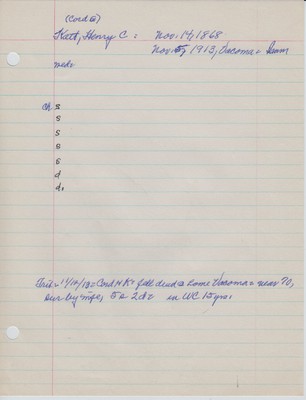 (Cord @)
Katt, Henry C. = Nov. 14, 1868
Nov. 5, 1913, Vacoma =
wed=
ch S
S
S
S
S
d
d,
Trib = 11/14/13 = Cord HK = fell dead @ home Vacoma = near 70,
sur by wife, 5 s 2 d = in WC 15 yrs.